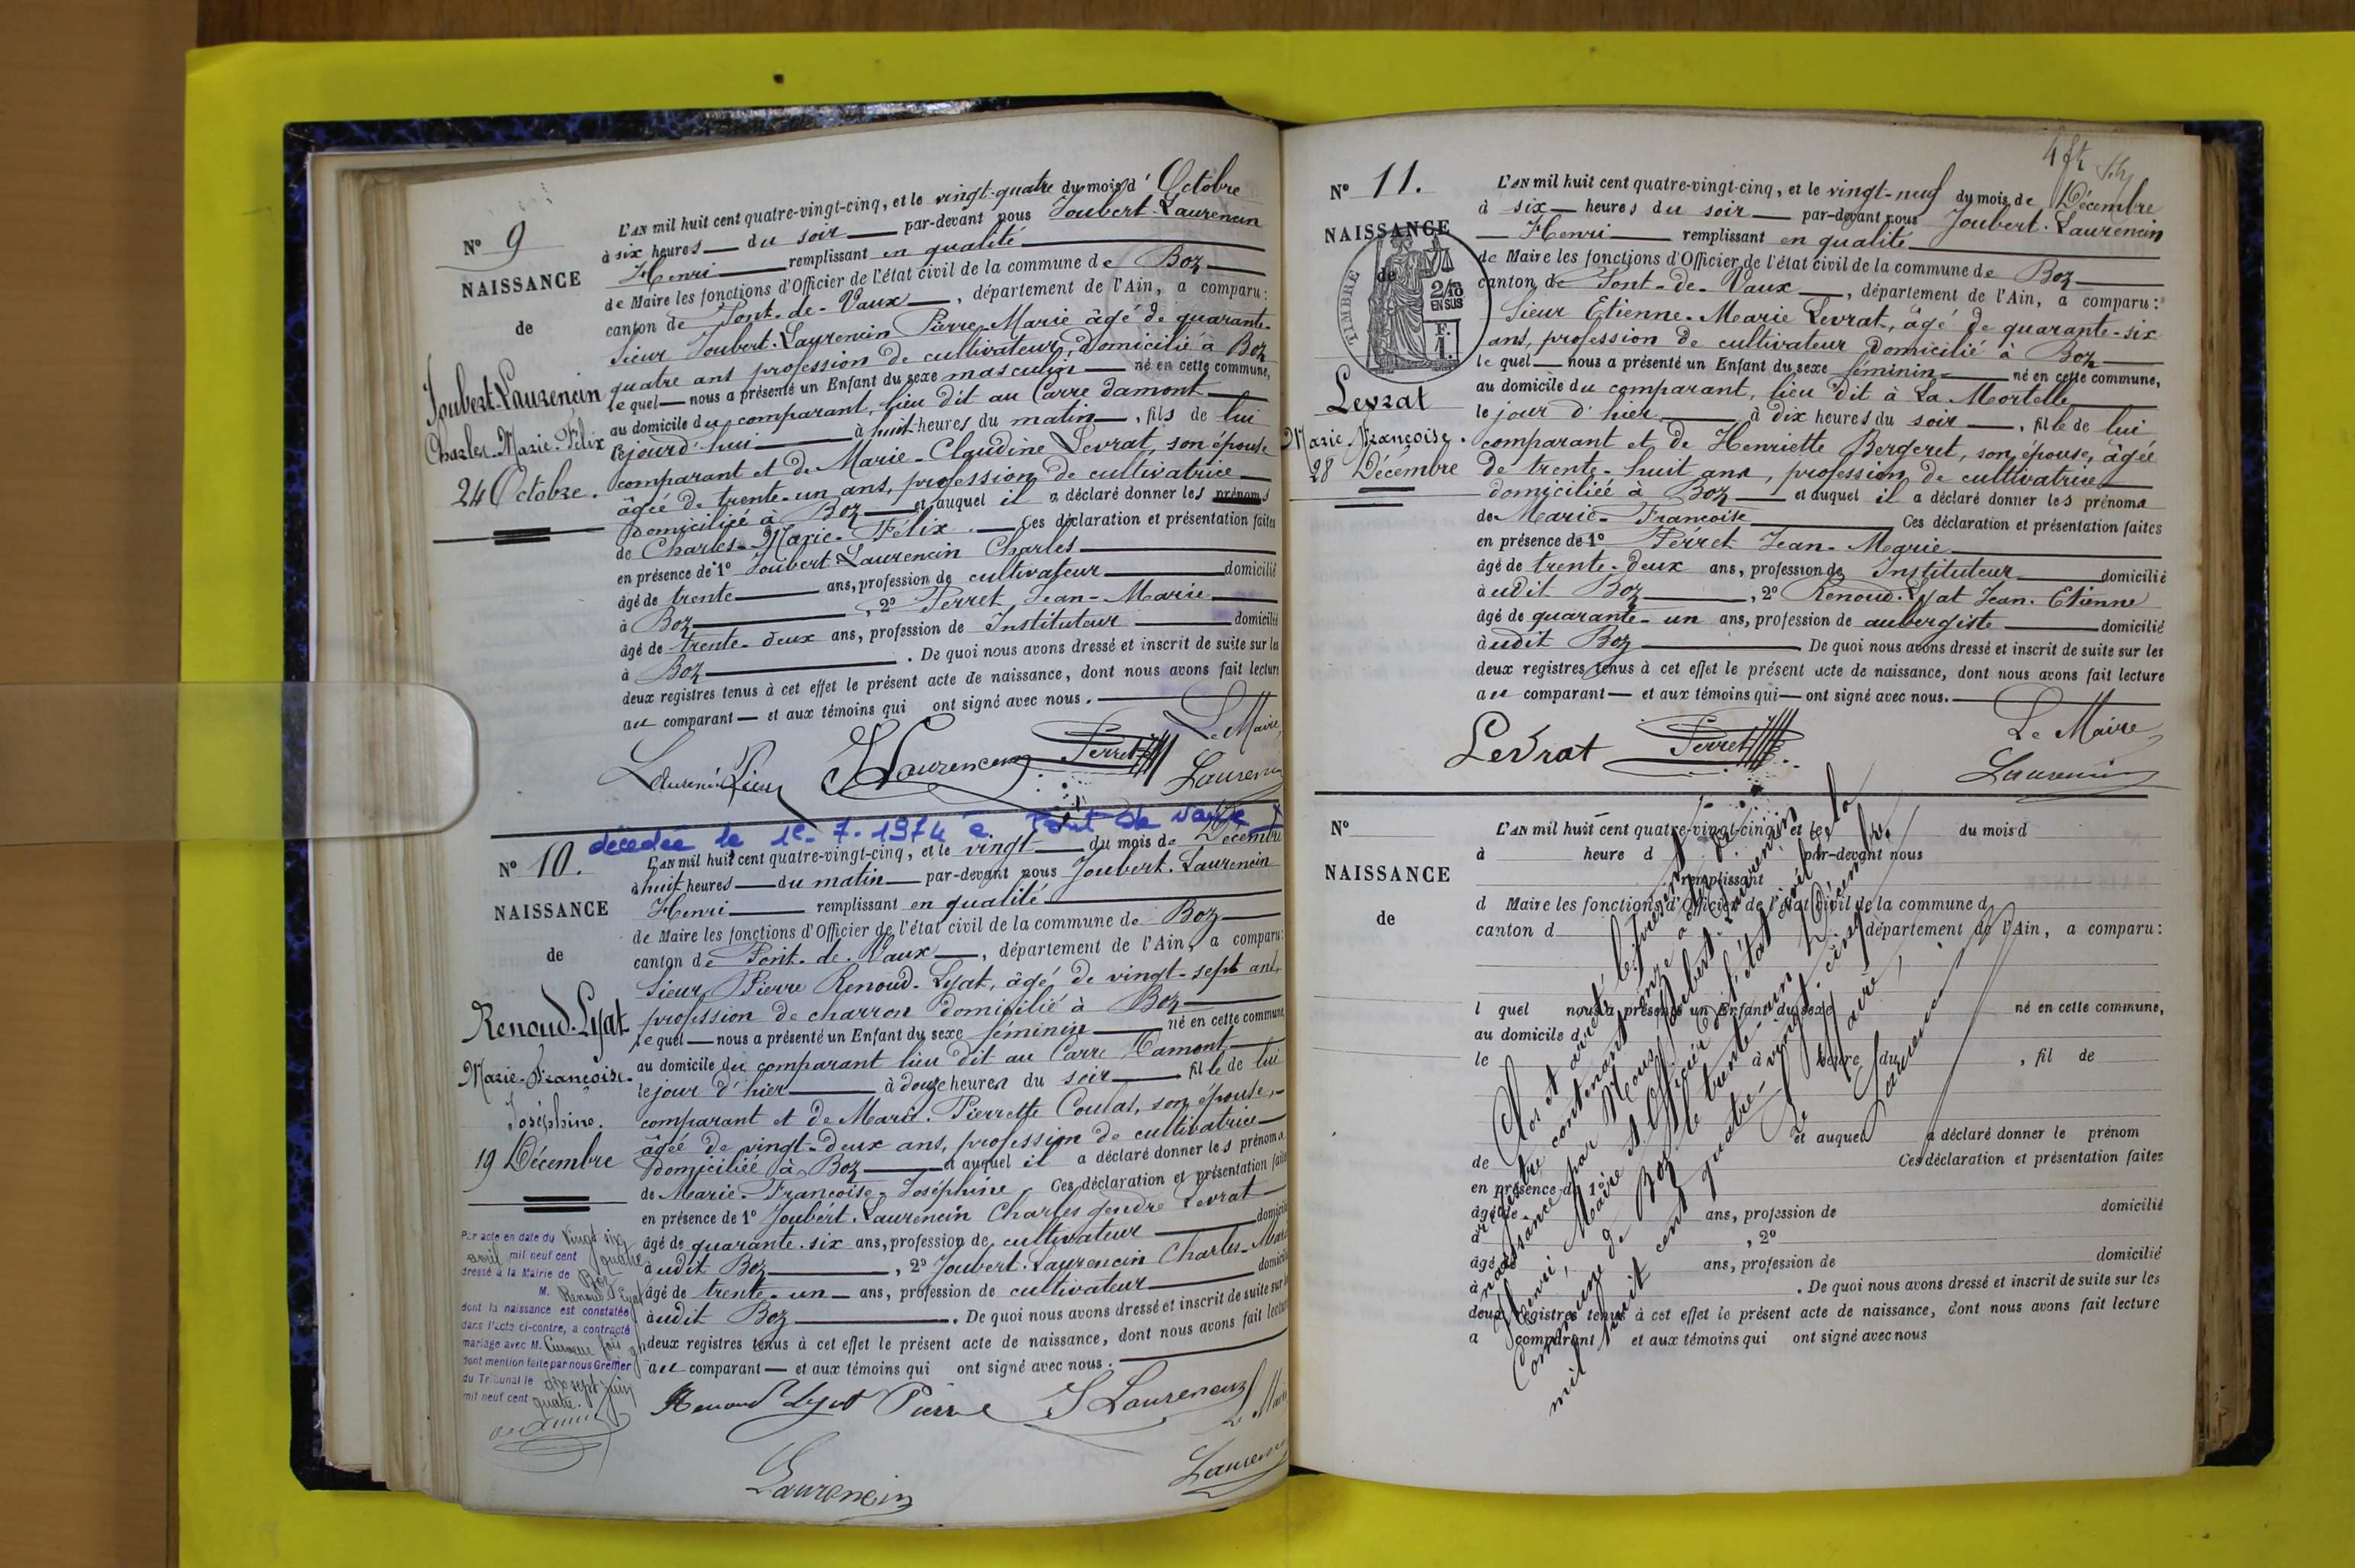 N° 9
NAISSANCE
de
Joubert-Laurencin
Charles-Marie-Félix
24 Octobre.
L'AN mil huit cent quatre-vingt-cinq, et le vingt-quatre du mois d'Octobre
à six heures du soir par-devant nous Joubert-Laurencin
Henri remplissant en qualité
de Maire les fonctions d'Officier de l'état civil de la commune de Boz
canton de Pont-de-Vaux, département de l'Ain, a comparu:
Sieur Joubert-Laurencin Pierre-Marie âgé de quarante-
quatre ans profession de cultivateur, domicilié à Boz
le quel nous a présenté un Enfant du sexe masculin né en cette commune,
au domicile du comparant, lieu dit au Carre damont
le jourd'hui à huit heures du matin, fils de lui
comparant et de Marie-Claudine Levrat, son épouse
âgée de trente-un ans, profession de cultivatrice
domiciliée à Boz et auquel il a déclaré donner les prénoms
de Charles-Marie-Félix. Ces déclaration et présentation faites
en présence de 1° Joubert-Laurencin Charles
âgé de trente ans, profession de cultivateur domicilié
à Boz, 2° Perret Jean-Marie
âgé de trente-deux ans, profession de Instituteur domicilié
à Boz. De quoi nous avons dressé et inscrit de suite sur les
deux registres tenus à cet effet le présent acte de naissance, dont nous avons fait lecture
au comparant et aux témoins qui ont signé avec nous.
Le Maire,
Laurencin Perret
décédée le 1e.7.1974 à Pont de Vaux
N° 10.
NAISSANCE
de
Renoud-Lyat
Marie-Françoise-
Joséphine.
19 Décembre
L'AN mil huit cent quatre-vingt-cinq, et le vingt du mois de Décembre
à huit heures du matin par-devant nous Joubert-Laurencin
Henri remplissant en qualité
de Maire les fonctions d'Officier de l'état civil de la commune de Boz
canton de Pont-de-Vaux, département de l'Ain, a comparu:
Sieur Pierre Renoud-Lyat, âgé de vingt-sept ans,
profession de charron domicilié à Boz
le quel nous a présenté un Enfant du sexe féminin né en cette commune
au domicile du comparant lieu dit au Carre Damont
le jour d'hier à douze heures du soir fille de lui
comparant et de Marie-Pierrette Coulas, son épouse,
âgée de vingt-deux ans, profession de cultivatrice
domiciliée à Boz et auquel il a déclaré donner les prénoms
de Marie-Françoise-Joséphine Ces déclaration et présentation faites
en présence de 1° Joubert-Laurencin Charles gendre Levrat
âgé de quarante-six ans, profession de cultivateur domicilié
àudit Boz, 2° Joubert-Laurencin Charles-Marie
âgé de trente-un ans, profession de cultivateur domicilié
àudit Boz. De quoi nous avons dressé et inscrit de suite sur les
deux registres tenus à cet effet le présent acte de naissance, dont nous avons fait lecture
au comparant et aux témoins qui ont signé avec nous.
Par acte en date du vingt six
avril mil neuf cent quatre
dressé à la Mairie de Boz
M. Renoud Lyat
dont la naissance est constatée
dans l'acte ci-contre, a contracté
mariage avec M.
dont mention faite par nous Greffier
du Tribunal le dix sept juin
mil neuf cent quatre.
Renoud Lyat Pierre Laurencin
Laurencin
N° 11.
NAISSANCE
de
TIMBRE
2/10
EN SUS
F.
1.
Levrat
Marie-Françoise.
28 Décembre
L'AN mil huit cent quatre-vingt-cinq, et le vingt-neuf du mois de Décembre
à six heures du soir par-devant nous Joubert-Laurencin
Henri remplissant en qualité
de Maire les fonctions d'Officier de l'état civil de la commune de Boz
canton de Pont-de-Vaux, département de l'Ain, a comparu:
Sieur Etienne-Marie Levrat, âgé de quarante-six
ans, profession de cultivateur domicilié à Boz
le quel nous a présenté un Enfant du sexe féminin né en cette commune,
au domicile du comparant, lieu dit à La Mortelle
le jour d'hier à dix heures du soir, fille de lui
comparant et de Henriette Bergeret, son épouse, âgée
de trente-huit ans, profession de cultivatrice
domiciliée à Boz et auquel il a déclaré donner les prénoms
de Marie-Françoise Ces déclaration et présentation faites
en présence de 1° Perret Jean-Marie
âgé de trente-deux ans, profession de Instituteur domicilié
àudit Boz, 2° Renoud-Lyat Jean-Etienne
âgé de quarante-un ans, profession de aubergiste domicilié
àudit Boz De quoi nous avons dressé et inscrit de suite sur les
deux registres tenus à cet effet le présent acte de naissance, dont nous avons fait lecture
au comparant et aux témoins qui ont signé avec nous.
Le Maire
Levrat Perret Laurencin
N°
NAISSANCE
de
L'AN mil huit cent quatre-vingt-cinq, et le du mois d
à heure d par-devant nous
remplissant
d Maire les fonctions d'Officier de l'état civil de la commune d
canton d département de l'Ain, a comparu:
l quel nous a présenté un Enfant du sexe né en cette commune,
au domicile d
le à heure du, fil de
et auquel a déclaré donner le prénom
de Ces déclaration et présentation faites
en présence de 1°
âgé de ans, profession de domicilié
à, 2°
âgé de ans, profession de domicilié
à. De quoi nous avons dressé et inscrit de suite sur les
deux registres tenus à cet effet le présent acte de naissance, dont nous avons fait lecture
a comparant et aux témoins qui ont signé avec nous
Clos et arrêté le présent
registre contenant onze actes de
naissance par Nous Joubert-Laurencin
Henri, Maire et Officier de l'état civil de la
Commune de Boz le trente-un Décembre
mil huit cent quatre-vingt-cinq.
Le Maire,
Laurencin